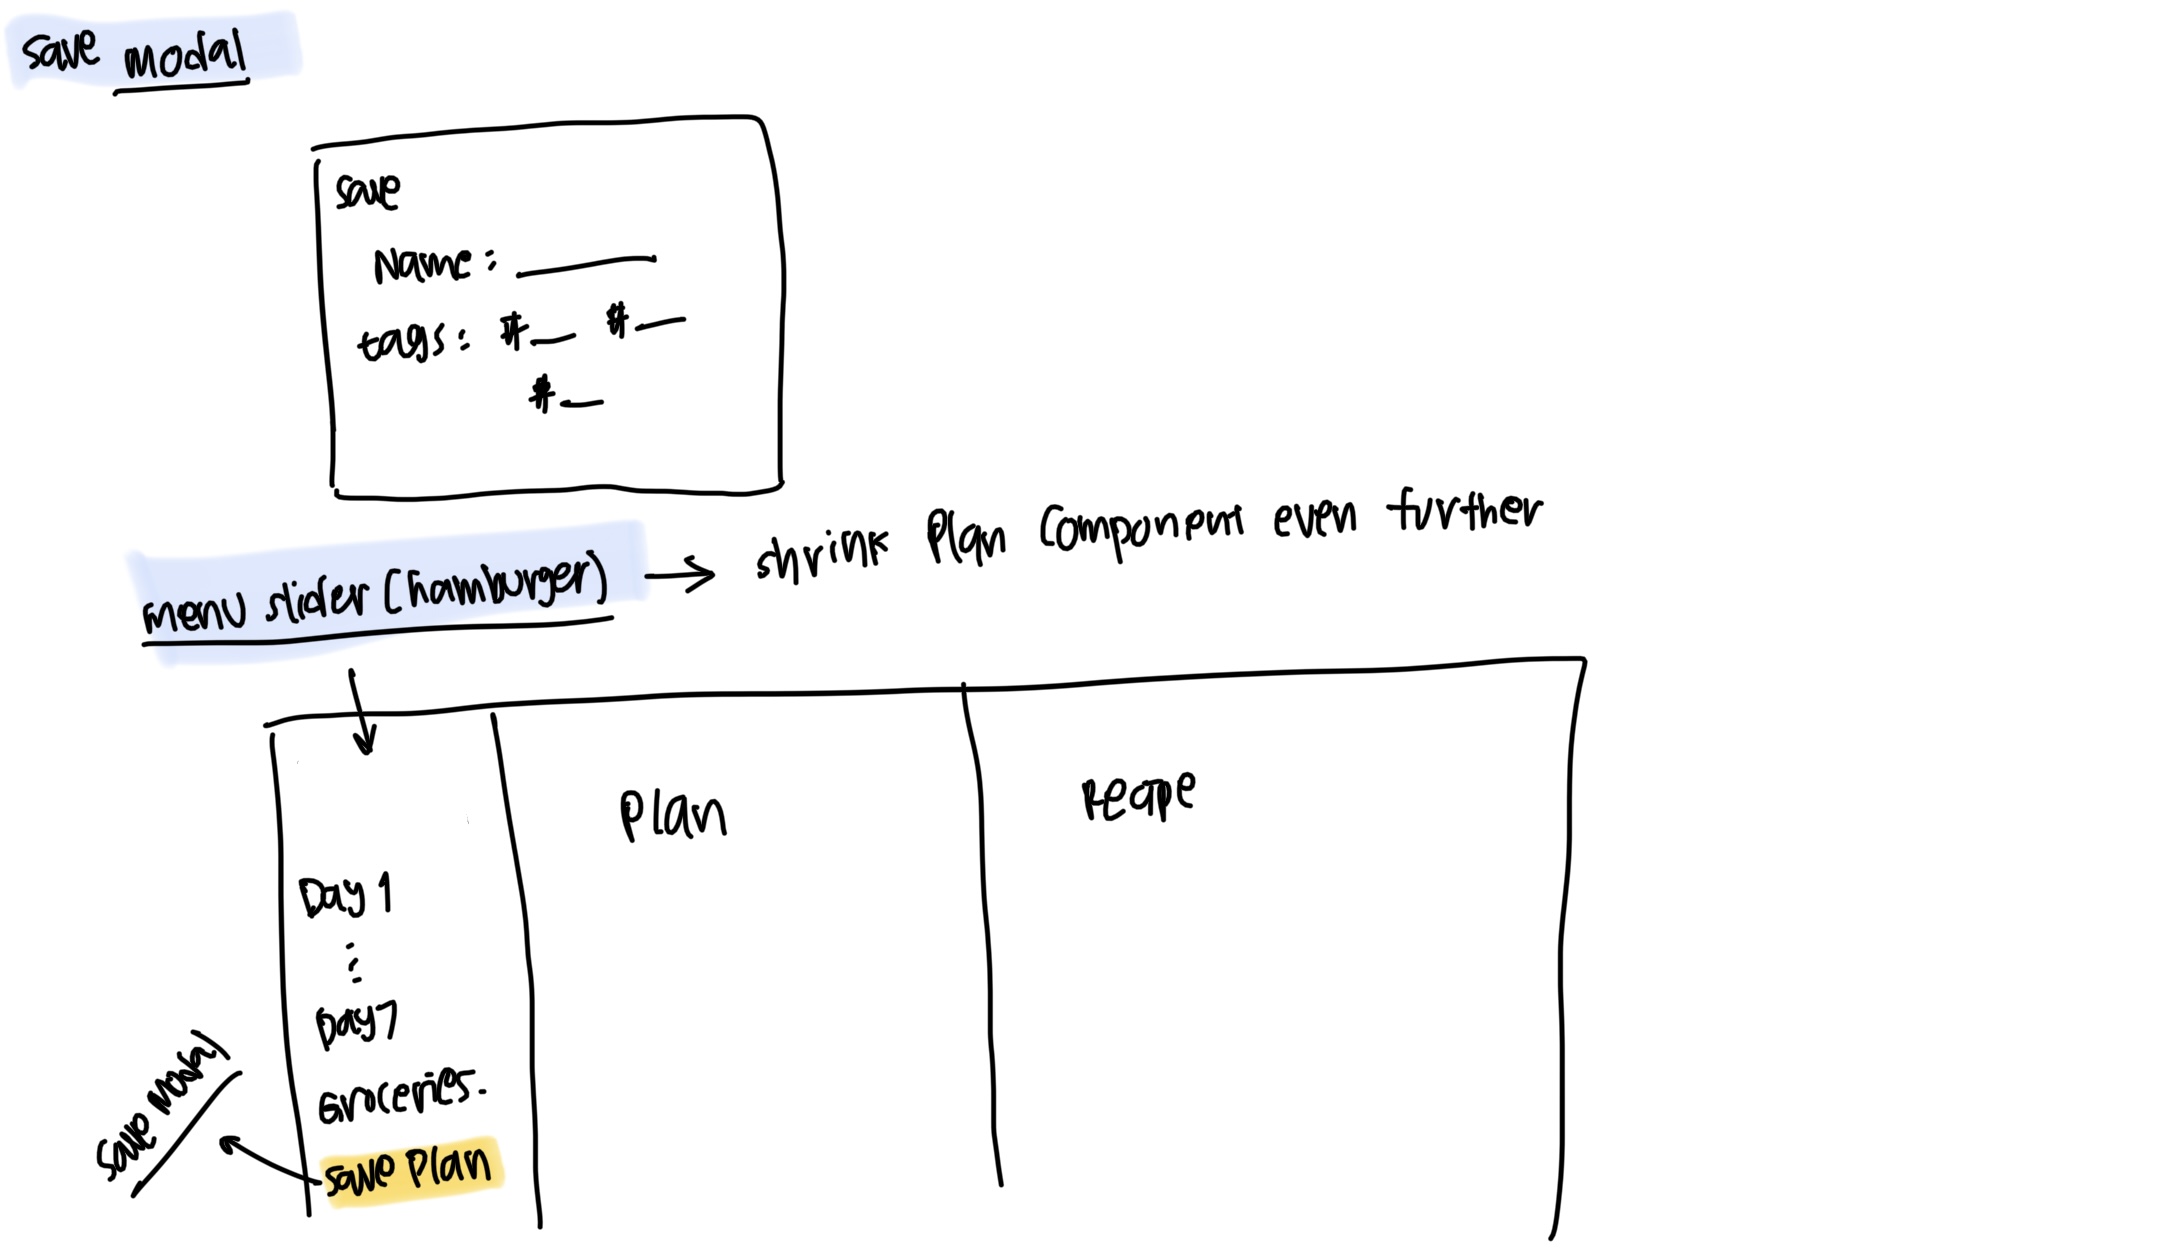 save modal
save
Name: ______
tags: #__ #__
#__
menu slider (hamburger) → shrink Plan Component even further
Plan
Recipe
Day 1
⋮
Day 7
Groceries.
save Plan
save Modal